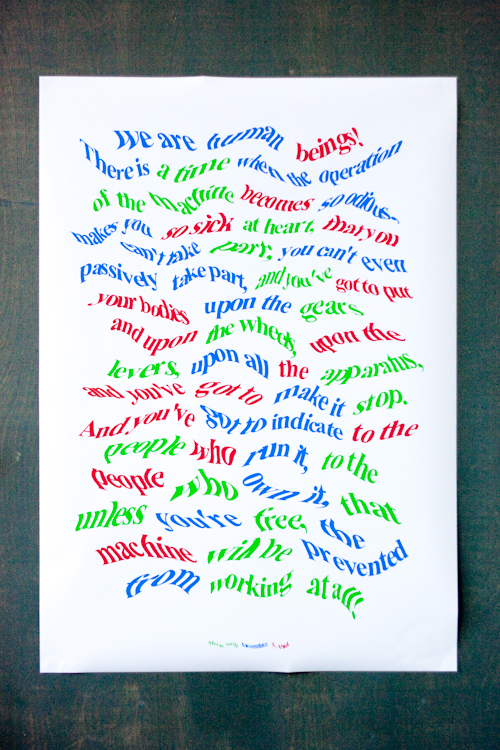 We are human beings!
There is a time when the operation
of the machine becomes so odious—
makes you so sick at heart, that you
can't take part, you can't even
passively take part, and you've got to put
your bodies upon the gears
and upon the wheels, upon the
levers, upon all the apparatus,
and you've got to make it stop.
And you've got to indicate to the
people who run it, to the
people who own it, that
unless you're free, the
machine will be prevented
from working at all!
December